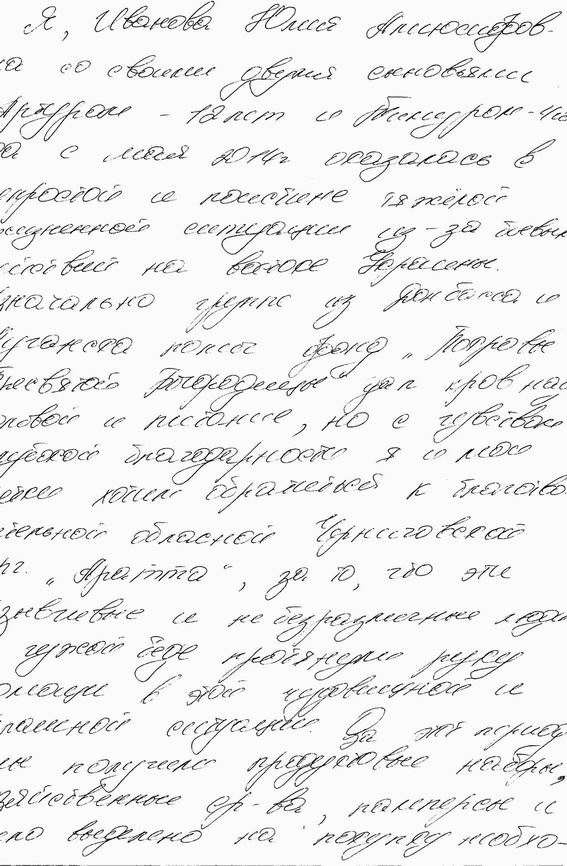 Я, Иванова Юлия Амиюсифов-
на со своими двумя сыновьями
Артуром - 12 лет и Тимуром - 4го
да с мая 2014г оказалась в
епростой и поистине тяжёлой
зненной ситуации из-за боевых
йствий на востоке Украины.
значально группе из Донбасса и
Луганска помог фонд „Покровы
Пресвятой Богородицы" дал кров над
оловой и питание, но с чувством
лубокой благодарности я и мои
етки хотим обратиться к благотво
ительной областной Черниговской
рг. „Аратта", за то, что эти
зывчивые и небезразличные люди
чужой беде протянули руку
омощи в этой чудовищной и
трашной ситуации. За этот период
мы получили продуктовые наборы,
зяйственные ср-ва, памперсы и
ыло выделено на покупку необхо-